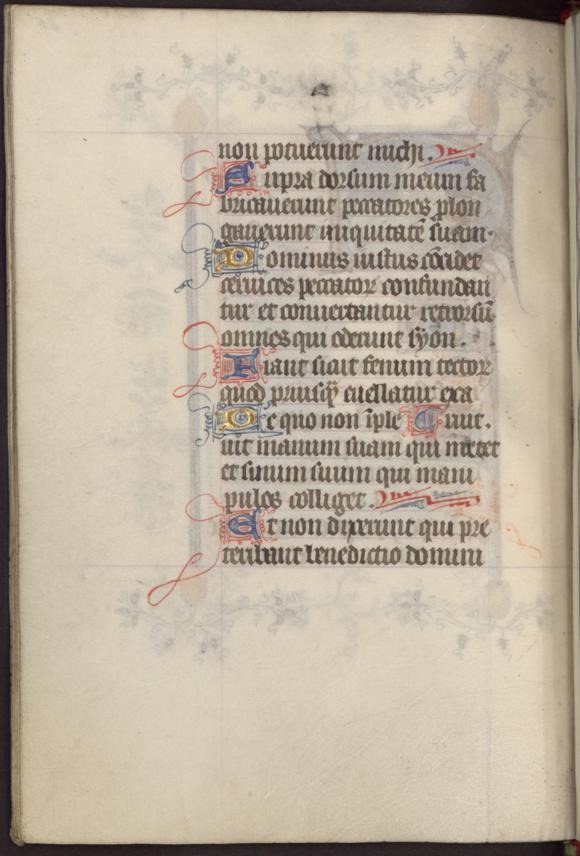 non potuerunt michi.
Supra dorsum meum fa
bricauerunt peccatores plon
gauerunt iniquitatē suam.
Dominus iustus cōcidet
ceruices peccatoꝝ confundan
tur et conuertantur retrorsū
omnes qui oderunt syon.
Fiant sicut fenum tectoꝝ
quod priusq̄ euellatur exa
De quo non īple ruit.
uit manum suam qui metet
et sinum suum qui mani
pulos colliget.
Et non dixerunt qui pre
teribant benedictio domini